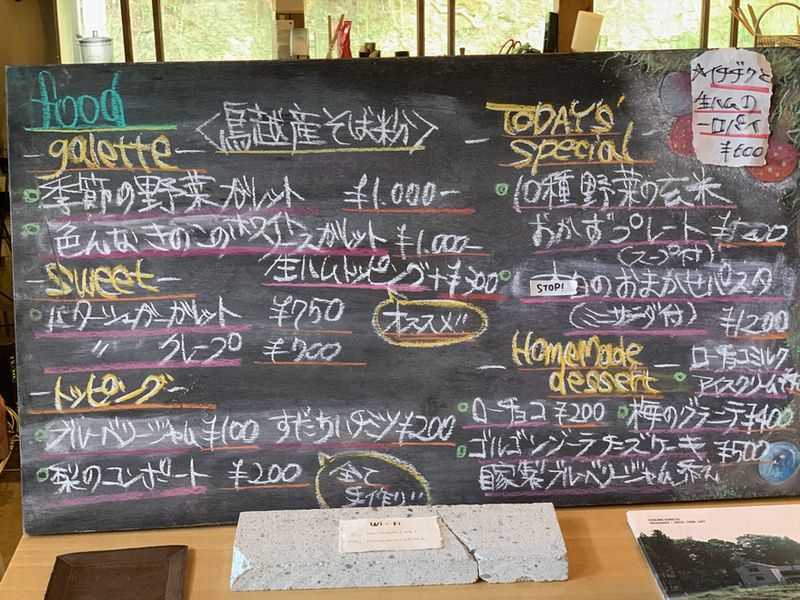 food
galette
〈鳥越産そば粉〉
季節の野菜ガレット ¥1.000-
色んなきのこのホワイトソースガレット ¥1.000-
生ハムトッピング+¥300
オススメ!!
sweet
バターシュガーガレット ¥750
〃 クレープ ¥700
トッピング
ブルーベリージャム ¥100 すだちハチミツ ¥200
梨のコンポート ¥200
全て
手作り!!
TODAY'S
special
大イチヂクと
生ハムの
一口パイ
¥600
10種野菜の玄米
おかずプレート
(スープ付)
STOP!
のおまかせパスタ
(ミニサラダ付) ¥1200
HomeMade
dessert
ローチョコミルク
アイスクリーム
ローチョコ ¥200
梅のグラニテ ¥400
ゴルゴンゾーラチーズケーキ ¥500
自家製ブルーベリージャム添え
Wi-Fi